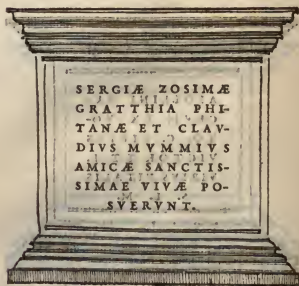 SERGIÆ ZOSIMÆ
GRATTHIA PHI-
TANÆ ET CLAV-
DIVS MVMMIVS
AMICÆ SANCTIS-
SIMAE VIVÆ PO-
SVERVNT.